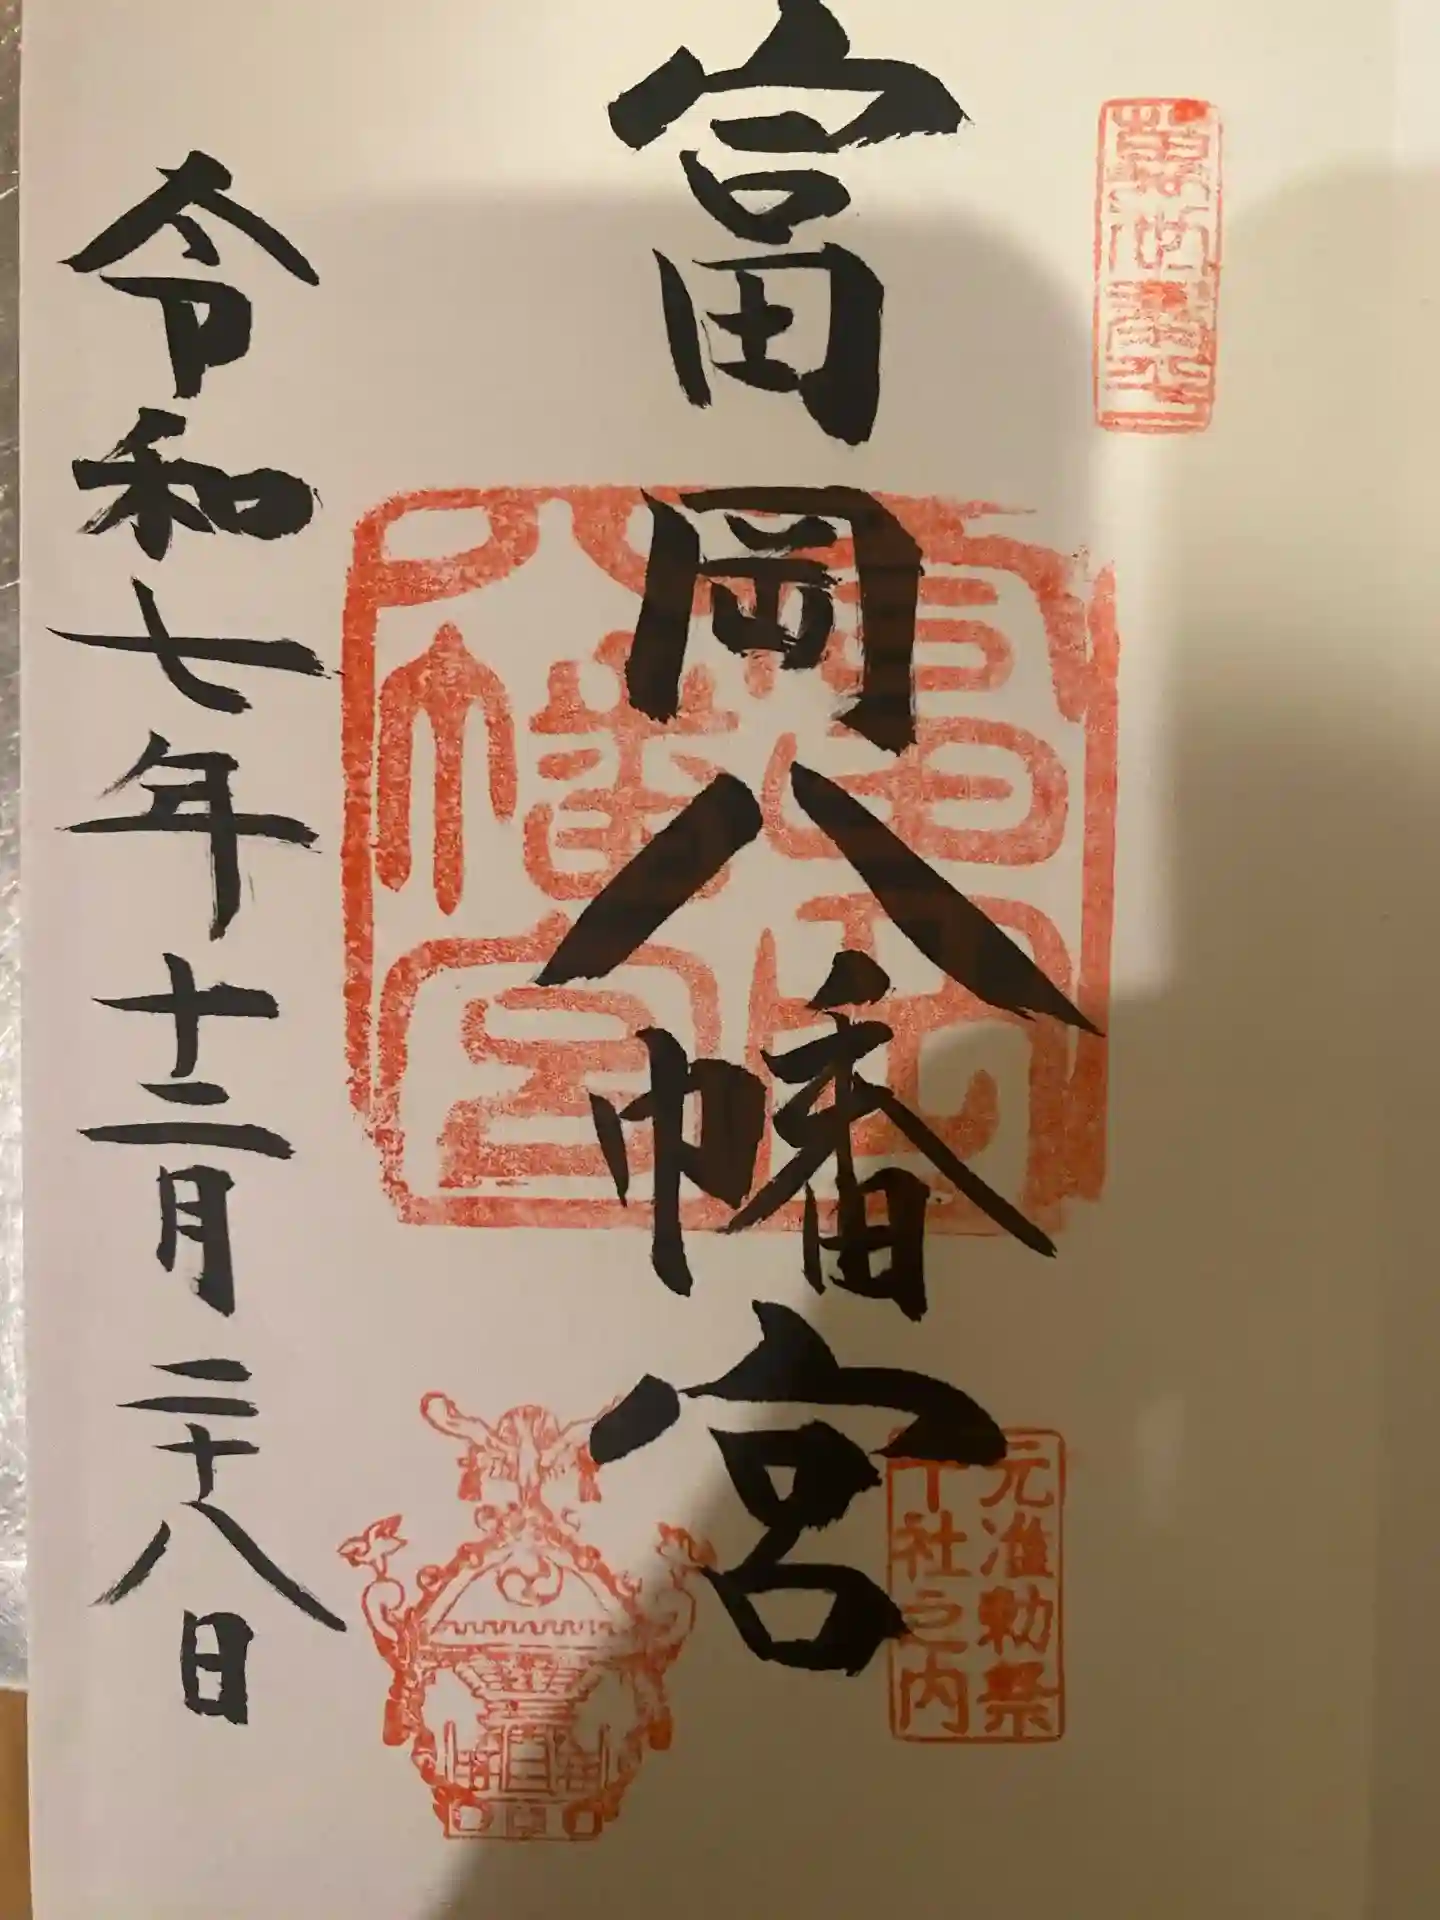 富岡八幡宮
富岡八幡宮
元准勅祭
十社之内
令和七年十二月二十八日